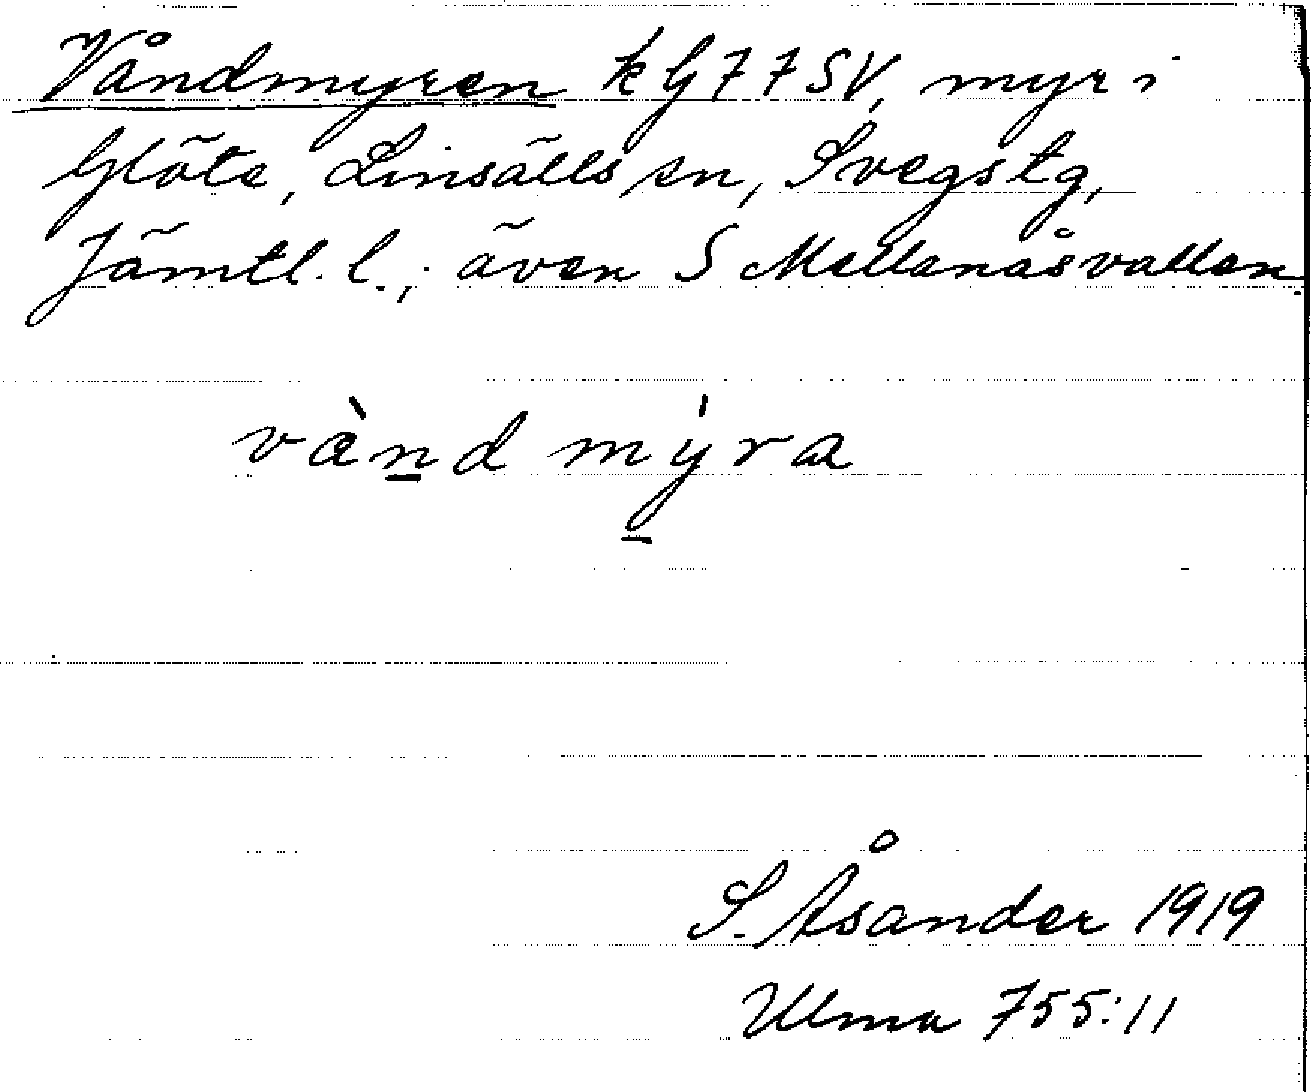 Våndmyren k G 7 7 SV, myr i
Glöte, Linsälls sn, Svegs tg,
Jämtl. l.; även S Mellanåsvallen.
vànd mýra
S. Åsander 1919
Ulma 755:11